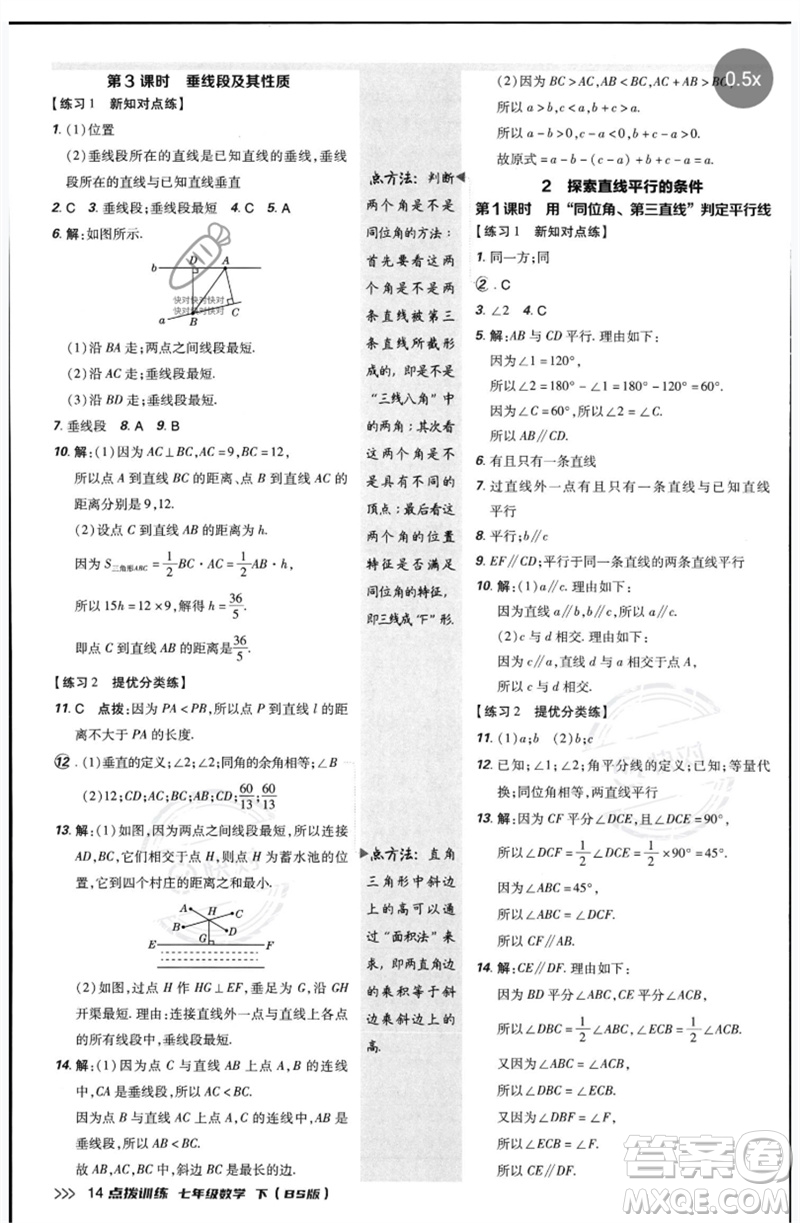 第3课时 垂线段及其性质
【练习1 新知对点练】
1. (1)位置
(2)垂线段所在的直线是已知直线的垂线,垂线
段所在的直线与已知直线垂直
2. C 3. 垂线段;垂线段最短 4. C 5. A
6. 解:如图所示.
b D A
快对快对快对
快对快对快对
a B C
(1)沿 BA 走;两点之间线段最短.
(2)沿 AC 走;垂线段最短.
(3)沿 BD 走;垂线段最短.
7. 垂线段 8. A 9. B
10. 解:(1)因为 AC⊥BC,AC=9,BC=12,
所以点 A 到直线 BC 的距离、点 B 到直线 AC 的
距离分别是9,12.
(2)设点 C 到直线 AB 的距离为 h.
因为 S三角形ABC=1/2BC·AC=1/2AB·h,
所以 15h=12×9,解得 h=36/5.
即点 C 到直线 AB 的距离为36/5.
【练习2 提优分类练】
11. C 点拨:因为 PA<PB,所以点 P 到直线 l 的距
离不大于 PA 的长度.
12. (1)垂直的定义;∠2;∠2;同角的余角相等;∠1
(2)12;CD;AC;垂线段最短;CD;60/13;60/13
13. 解:(1)因为两点之间线段最短,所以连接
AD,BC,它们交于点 H,则点 H 为蓄水池的位
置,它到四个村庄的距离之和最小.
A C
B H D
E G F
(2)如图,过点 H 作 HG⊥EF,垂足为 G,沿 GH
开渠最短. 理由:连接直线外一点与直线上各点
的所有线段中,垂线段最短.
14. 解:(1)因为点 C 与直线 AB 上点 A,B 的连线
中,CA 是垂线段,所以 AC<BC.
因为点 B 与直线 AC 上点 A,C 的连线中,AB 是
垂线段,所以 AB<BC.
故 AB,AC,BC 三条边中,斜边 BC 最长.
>>> 14 点拨训练 七年级数学 下(BS版)
点方法:判断
两个角是不是
同位角的方法:
首先要看这两
个角是不是两
条直线被第三
条直线所截形
成的,即是不是
“三线八角”中
的两角;其次看
这两个角是不
是具有不同的
顶点;最后看这
两个角的位置
特征是否满足
同位角的特征,
即三线成“F”形.
点方法:直角
三角形中斜边
上的高可以通
过“面积法”来
求,即两直角边
的乘积等于斜
边乘斜边上的
高.
0.5x
(2)因为 BC>AC,AB<BC,AC+AB>BC,
所以 a>b,c<a,b+c>a.
所以 a-b>0,c-a<0,b+c-a>0.
故原式=a-b-(c-a)+b+c-a=a.
2 探索直线平行的条件
第1课时 用“同位角、第三直线”判定平行线
【练习1 新知对点练】
1. 同一方;同
2. C
3. ∠2 4. C
5. 解:AB 与 CD 平行. 理由如下:
因为∠1=120°,
所以∠2=180°-120°=60°.
因为∠C=60°,所以∠2=∠C.
所以 AB∥CD.
6. 有且只有一条直线
7. 过直线外一点有且只有一条直线与这条直线
平行
8. 平行;b∥c
9. EF∥CD;平行于同一条直线的两条直线平行
10. 解:(1)a∥c. 理由如下:
因为直线 a∥b,b∥c,所以直线 a∥c.
(2)c 与 d 相交. 理由如下:
因为 c∥a,直线 a 与 d 相交于点 A,
所以 c 与 d 相交.
【练习2 提优分类练】
11. (1)a;b (2)b;c
12. 已知;∠2;角平分线的定义;已知;等量代
换;同位角相等,两直线平行
13. 解:因为 CF 平分∠DCE,且∠DCE=90°,
所以∠DCF=1/2∠DCE=1/2×90°=45°.
因为∠BAC=45°,
所以∠BAC=∠DCF.
所以 AB∥CF.
14. 解:CE∥DF. 理由如下:
因为 BD 平分∠ABC,CE 平分∠ACB,
所以∠DBC=1/2∠ABC,∠ECB=1/2∠ACB.
又因为∠ABC=∠ACB,
所以∠DBC=∠ECB.
又因为∠DBF=∠F,
所以∠ECB=∠F.
所以 CE∥DF.
答案圈
MXQE.COM